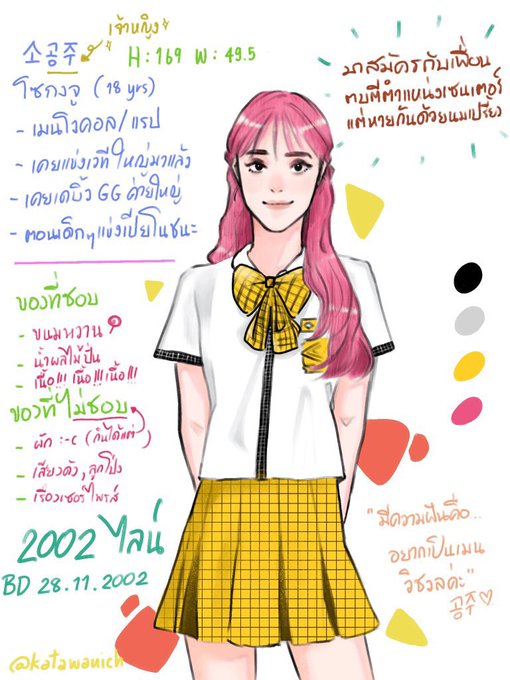 เจ้าหญิง
소공주
H: 169 W: 49.5
โซกงจู (18 yrs)
- เมนโวคอล/แรป
- เคยแข่งเวทีใหญ่มาแล้ว
- เคยเดบิ้ว GG ค่ายใหญ่
- ตอนเด็กๆแข่งเปียโนชนะ
มาสมัครกับเพื่อน
ตบตีตำแหน่งเซนเตอร์
แต่หายกันด้วยนมเปรี้ยว
ของที่ชอบ
- ขนมหวาน
- น้ำผลไม้ปั่น
- เนื้อ!!! เนื้อ!!! เนื้อ!!!
ของที่ไม่ชอบ
- ผัก :-c (กินได้แต่)
- เสียงดัง, ลูกโป่ง
- เรื่องเซอร์ไพรส์
2002 ไลน์
BD 28.11.2002
"มีความฝันคือ..
อยากเป็นเมน
วิชวลค่ะ"
공주 ♡
@katawanich